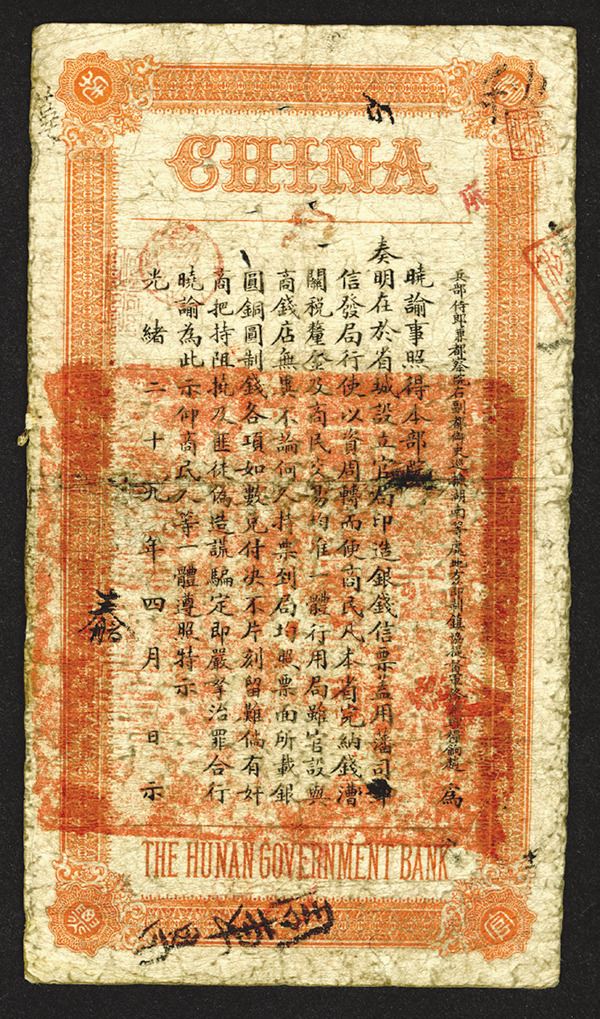 CHINA
兵部侍郎兼都察院右副都御史巡撫湖南等處地方節制鎮協提督軍務兼理糧餉趙 為
曉諭事照得本部院
奏明在於省城設立官局印造銀錢信票蓋用藩司印
信發局行使以資周轉而便商民凡本省完納錢漕
關稅釐金及商民交易均准一體行用局雖官設與
商錢店無異不論何人持票到局均照票面所載銀
圓銅圓制錢各項如數兌付決不片刻留難倘有奸
商把持阻撓及匪徒偽造謊騙定即嚴拏治罪合行
曉諭為此示仰商民人等一體遵照特示
光緒二十九年四月 日示
THE HUNAN GOVERNMENT BANK